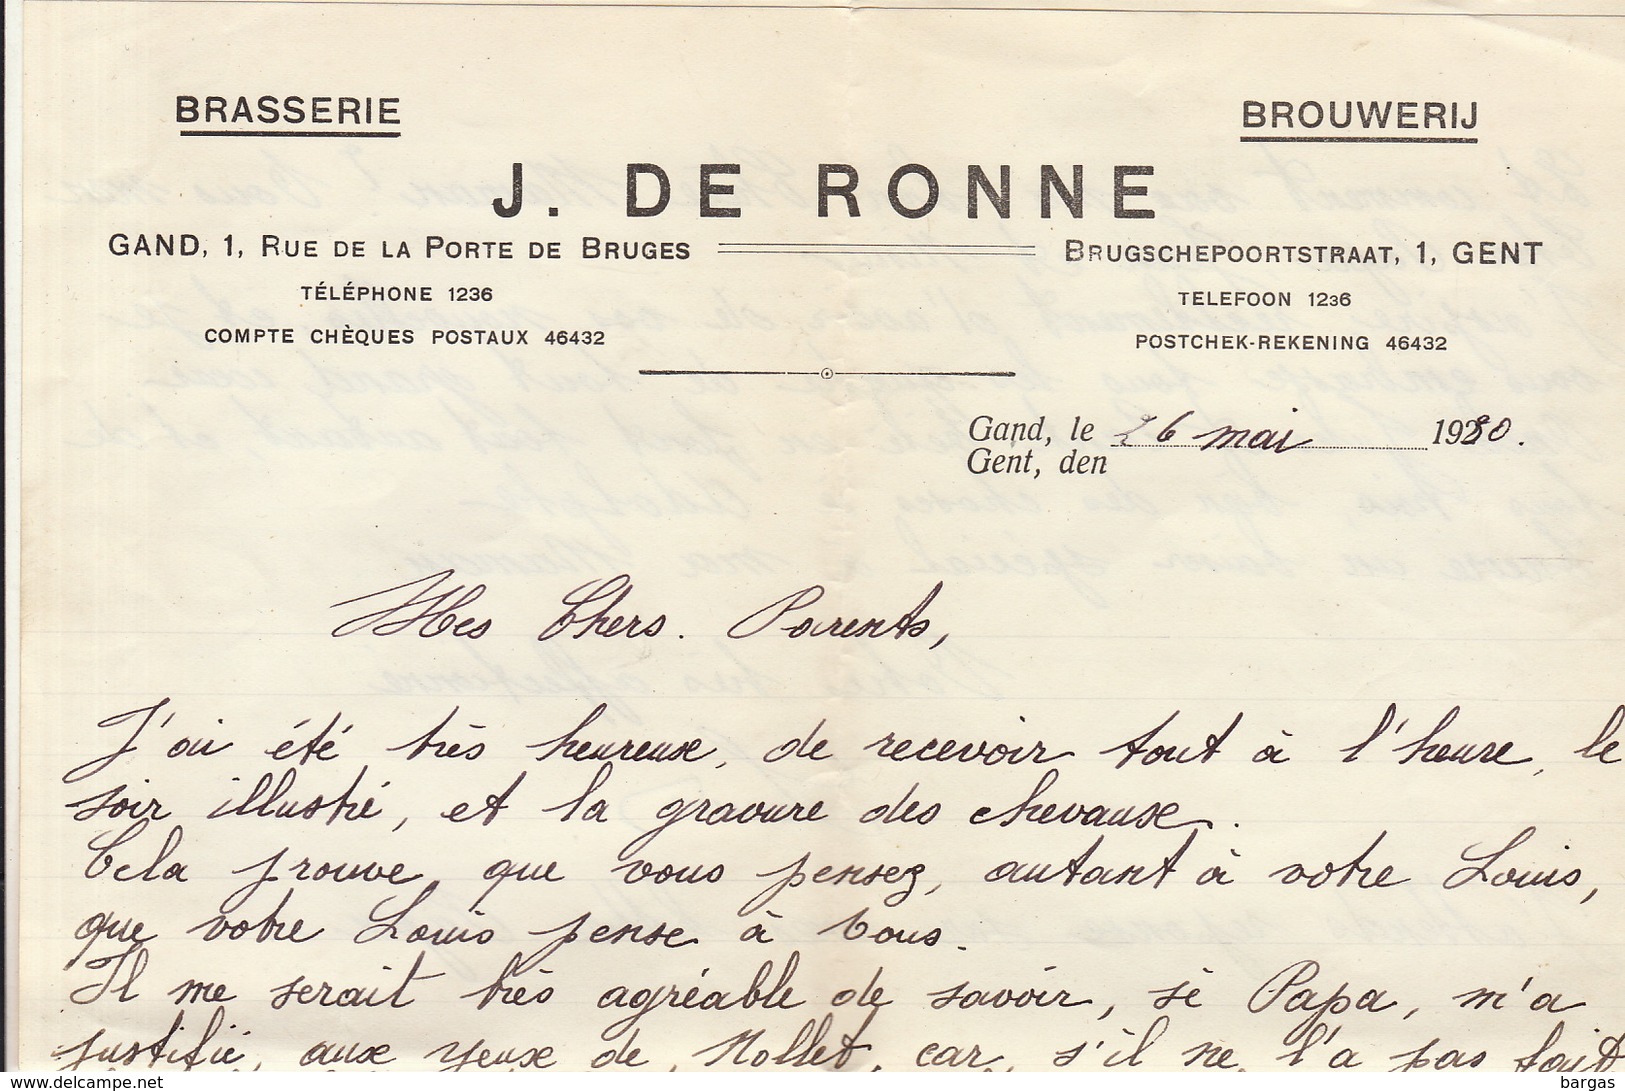 BRASSERIE
BROUWERIJ
J. DE RONNE
GAND, 1, RUE DE LA PORTE DE BRUGES
BRUGSCHEPOORTSTRAAT, 1, GENT
TÉLÉPHONE 1236
TELEFOON 1236
COMPTE CHÈQUES POSTAUX 46432
POSTCHEK-REKENING 46432
Gand, le 26 mai 1930.
Gent, den
Mes Chers. Parents,
J'ai été très heureuse, de recevoir tout à l'heure, le
soir illustré, et la gravure des chevaux.
Cela prouve, que vous pensez, autant à votre Louis,
que votre Louis pense à Vous.
Il me serait très agréable de savoir, si Papa, m'a
justifié, aux yeux de, Mollet, car, s'il ne l'a pas fait
delcampe.net
bargas